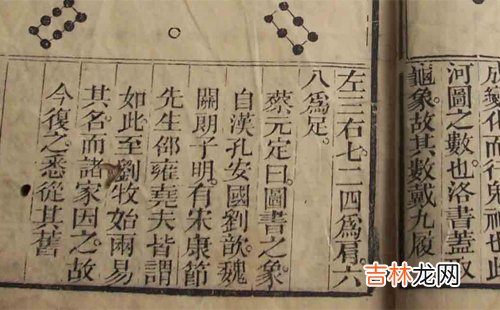 成變化而行鬼神也此
河圖之數也洛書蓋取
龜象故其數戴九履
左三右七二四爲肩六
八爲足
蔡元定曰圖書之象
自漢孔安國劉歆魏
關朗子明有宋康節
先生邵雍堯夫皆謂
如此至劉牧始兩易
其名而諸家因之故
今復之悉從其舊
吉林龙网
www.jllongwang.com